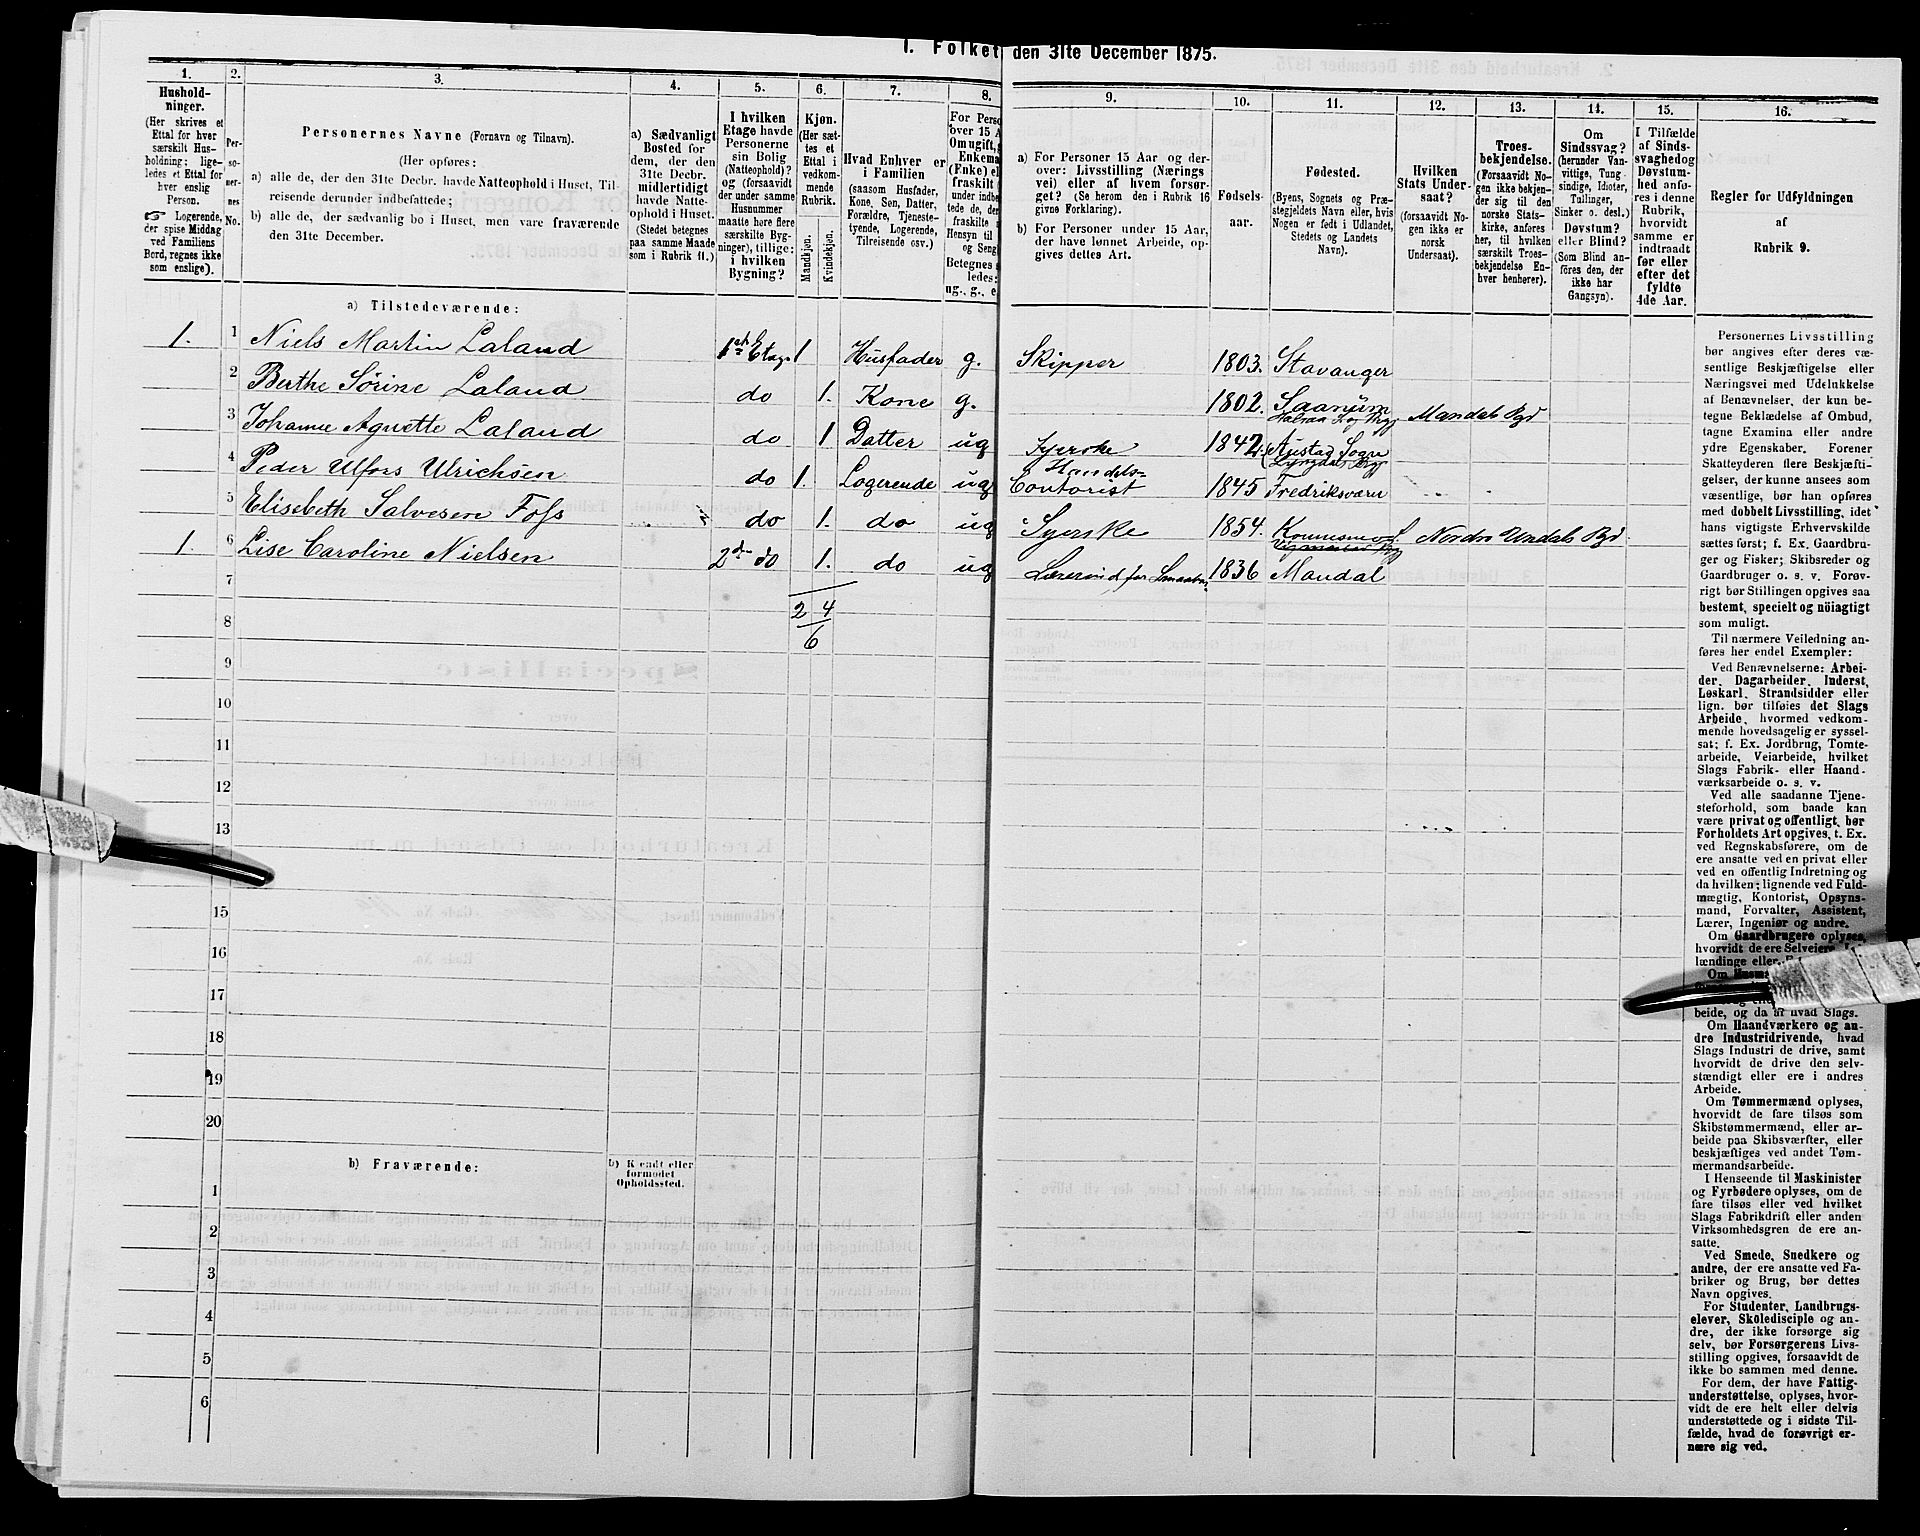 1. Folket den 31te December 1875.
1.
Hushold-
ninger.
(Her skrives et
Ettal for hver
særskilt Hus-
holdning; lige-
ledes et Ettal for
hver enslig
Person.
☞ Logerende,
der spise Middag
ved Familiens
Bord, regnes ikke
som enslige).
2.
Per-
so-
ner-
nes
No.
3.
Personernes Navne (Fornavn og Tilnavn).
(Her opføres:
a) alle de, der den 31te Decbr. havde Natteophold i Huset, Til-
reisende derunder indbefattede;
b) alle de, der sædvanlig bo i Huset, men vare fraværende
den 31te December.
4.
a) Sædvanligt
Bosted for
dem, der den
31te Decbr.
midlertidigt
havde Natte-
ophold i Huset.
(Stedet betegnes
paa samme Maade
som i Rubrik 11.)
5.
I hvilken
Etage havde
Personerne
sin Bolig
(Natteophold)?
og (forsaavidt
der under samme
Husnummer
maatte høre flere
særskilte Byg-
ninger), tillige:
i hvilken
Bygning?
6.
Kjøn.
(Her sæt-
tes et
Ettal i
vedkom-
mende
Rubrik.
Mandkjøn.
Kvindekjøn.
7.
Hvad Enhver er
i Familien
(saasom Husfader,
Kone, Søn, Datter,
Forældre, Tjeneste-
tyende, Logerende,
Tilreisende osv.)
8.
For Perso
over 15 A
Om ugift,
Enkema
(Enke) el
fraskilt
under indbe
tede de, de
fraskilte
Hensyn til
og Seng
Betegnes
ledes:
ug., g., e
9.
a) For Personer 15 Aar og der-
over: Livsstilling (Nærings
vei) eller af hvem forsør-
get? (Se herom den i Rubrik 16
givne Forklaring).
b) For Personer under 15 Aar,
der have lønnet Arbeide, op-
gives dettes Art.
10.
Fødsels-
aar.
11.
Fødested.
(Byens, Sognets og Præ-
stegjeldets Navn eller, hvis
Nogen er født i Udlandet,
Stedets og Landets
Navn).
12.
Hvilken
Stats Under-
saat?
(forsaavidt No-
gen ikke er
norsk
Undersaat).
13.
Troes-
bekjendelse.
(Forsaavidt No-
gen ikke bekjen-
der sig til den
norske Stats-
kirke, anføres
her, til hvilken
særskilt Troes-
bekjendelse En-
hver henhører).
14.
Om
Sindssvag?
(herunder Van-
vittige, Tung-
sindige, Idioter,
Tullinger,
Sinker o. desl.)
Døvstum?
eller Blind?
(Som Blind an-
føres den, der
ikke har
Gangsyn).
15.
I Tilfælde
af Sinds-
svaghedog
Døvstum-
hed anfø-
res i denne
Rubrik,
hvorvidt
samme er
indtraadt
før eller
efter det
fyldte
4de Aar.
16.
Regler for Udfyldningen
af
Rubrik 9.
a) Tilstedeværende:
1. 1 Niels Martin Laland 1ste Etage 1 Husfader g. Skipper 1803. Stavanger
2 Berthe Sørine Laland do 1. Kone g. 1802. Saanum Halsaa S. og Prgj Mandals Prgj
3 Johanne Agnette Laland do 1 Datter ug Syerske 1842. Austad Sogn Lyngdals Prgj
4 Peder Ulfors Ulrichsen do 1. Logerende ug Handels-
Contorist 1845 Fredriksværn
5 Elisabeth Salvesen Foss do 1. do ug Syerske 1854. Nordre Undals Prgj.
1. 6 Lise Caroline Nielsen 2den do 1. do ug Lærerinde for Smaabørn 1836 Mandal
7
2 4
8
6
9
10
11
12
13
15
16
17
18
19
20
b) Fraværende:
b) Kendt eller
formodet
Opholdssted.
1
2
3
4
5
6
Personernes Livsstilling
bør angives efter deres væ-
sentlige Beskjæftigelse eller
Næringsvei med Udelukkelse
af Benævnelser, der kun be-
tegne Beklædelse af Ombud,
tagne Examina eller andre
ydre Egenskaber. Forener
Skatteyderen flere Beskjæfti-
gelser, der kunne ansees som
væsentlige, bør han opføres
med dobbelt Livsstilling, idet
hans vigtigste Erhvervskilde
sættes først; f. Ex. Gaardbru-
ger og Fisker; Skibsreder og
Gaardbruger o. s. v. Forøv-
rigt bør Stillingen opgives saa
bestemt, specielt og nöiagtigt
som muligt.
Til nærmere Veiledning an-
føres her endel Exempler:
Ved Benævnelserne: Arbei-
der, Dagarbeider, Inderst,
Løskarl, Strandsidder eller
lign. bør tilføies det Slags
Arbeide, hvormed vedkom-
mende hovedsagelig er syssel-
sat; f. Ex. Jordbrug, Tomte-
arbeide, Veiarbeide, hvilket
Slags Fabrik- eller Haand-
værksarbeide o. s. v.
Ved alle saadanne Tjene-
steforhold, som baade kan
være privat og offentligt, bør
Forholdets Art opgives, t. Ex.
ved Regnskabsførere, om de
ere ansatte ved en privat eller
ved en offentlig Indretning og
da hvilken; lignende ved Fuld-
mægtig, Kontorist, Opsyns-
mand, Forvalter, Assistent,
Lærer, Ingeniør og andre.
Om Gaardbrugere oplyses,
hvorvidt de ere Selveiere,
lændinge eller
Om
beide, og da af hvad Slags.
Om Haandværkere og an-
dre Industridrivende, hvad
Slags Industri de drive, samt
hvorvidt de drive den selv-
stændigt eller ere i andres
Arbeide.
Om Tømmermænd oplyses,
hvorvidt de fare tilsøs som
Skibstømmermænd, eller ar-
beide paa Skibsværfter, eller
beskjæftiges ved andet Tøm-
mermandsarbeide.
I Henseende til Maskinister
og Fyrbødere oplyses, om de
fare tilsøs eller ved hvilket
Slags Fabrikdrift eller anden
Virksomhedsgren de ere an-
satte.
Ved Smede, Snedkere og
andre, der ere ansatte ved Fa-
briker og Brug, bør dettes
Navn opgives.
For Studenter, Landbrugs-
elever, Skoledisciple og an-
dre, der ikke forsørge sig
selv, bør Forsørgerens Livs-
stilling opgives, forsaavidt de
ikke bo sammen med denne.
For dem, der have Fattig-
understøttelse, oplyses, hvor-
vidt de ere helt eller delvis
understøttede og i sidste Til-
fælde, hvad de forøvrigt er-
nære sig ved.